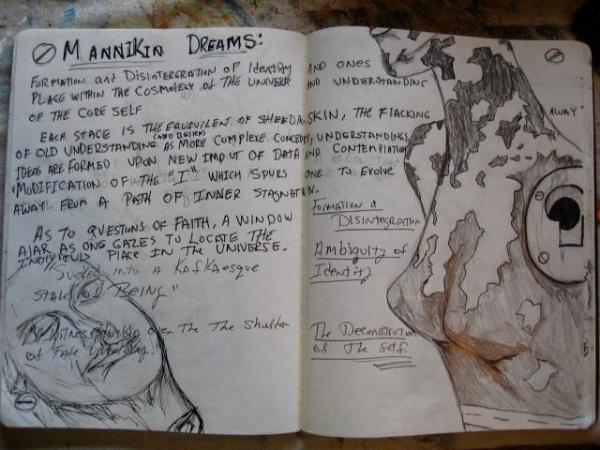 MANNIKIN DREAMS:
FORMATION and DISINTERGRATION OF IDENTITY AND ONES
PLACE WITHIN THE COSMOLGY OF THE UNIVERSE AND UNDERSTANDING
OF THE CORE SELF
EACH STAGE IS THE EQUIVILENT OF SHEEDA SKIN, THE FLACKING AWAY"
OF OLD UNDERSTANDING AS MORE COMPLEXE CONCEPTS, UNDERSTANDINGS
IDEAS ARE FORMED UPON NEW IMPUT OF DATA AND CONTEMPLATION
MODIFICATION OF THE "I" WHICH SPURS ONE TO EVOLVE
AWAY FROM A PATH OF INNER STAGNATION.
AS TO QUESTIONS OF FAITH, A WINDOW
AJAR AS ONE GAZES TO LOCATE THE
INDIVIDULS PLACE IN THE UNIVERSE.
INTO A KAFKAESQUE
BEING"
OVER THE THE
OF
FORMATION &
DISINTEGRATION
AMBIQUITY OF
IDENTITY
THE DECONSTRUCTION
OF THE SELF.